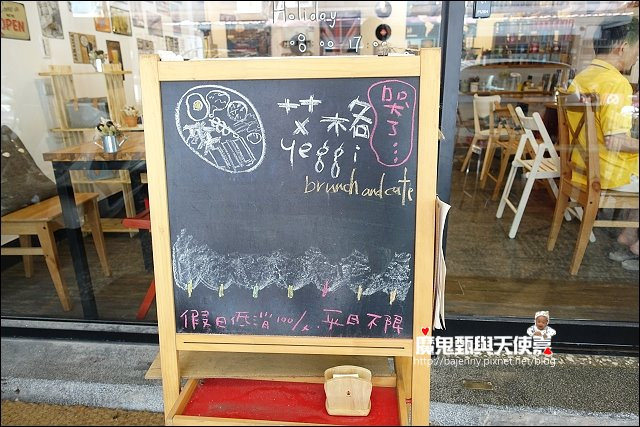 OPEN
Holiday
8:00-17:00
艾格
哭了:
yeggi
brunch and cafe
假日低消100/人 平日不限
PUSH
魔鬼甄與天使嘉
http://bajenny.pixnet.net/blog